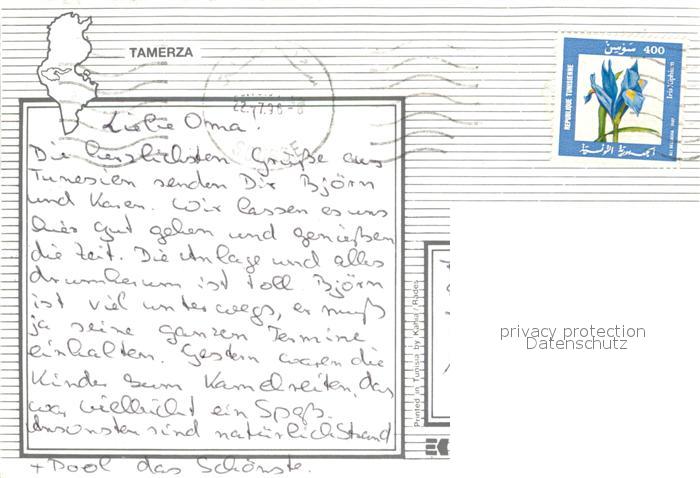 TAMERZA
سوسن 400
REPUBLIQUE TUNISIENNE
Iris Xiphium
الجمهورية التونسية
22-7.98-8
SOUSSE
Liebe Oma!
Die herzlichsten Grüße aus
Tunesien senden Dir Björn
und Karen. Wir lassen es uns
hier gut gehen und genießen
die Zeit. Die Anlage und alles
drumherum ist toll. Björn
ist viel unterwegs, er muß
ja seine ganzen Termine
einhalten. Gestern waren die
Kinder zum Kamelreiten, das
war vielleicht ein Spaß.
Ansonsten sind natürlich Strand
+ Pool das Schönste.
Printed in Tunisia by Kahia / Rades
privacy protection
Datenschutz